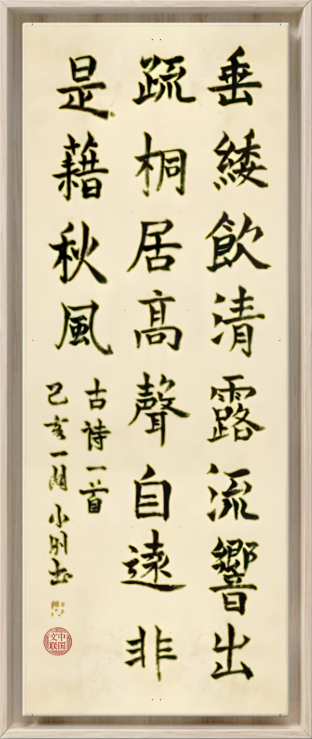 垂緌飲清露流響出
疏桐居高聲自遠非
是藉秋風
古诗一首
己亥一月小别书